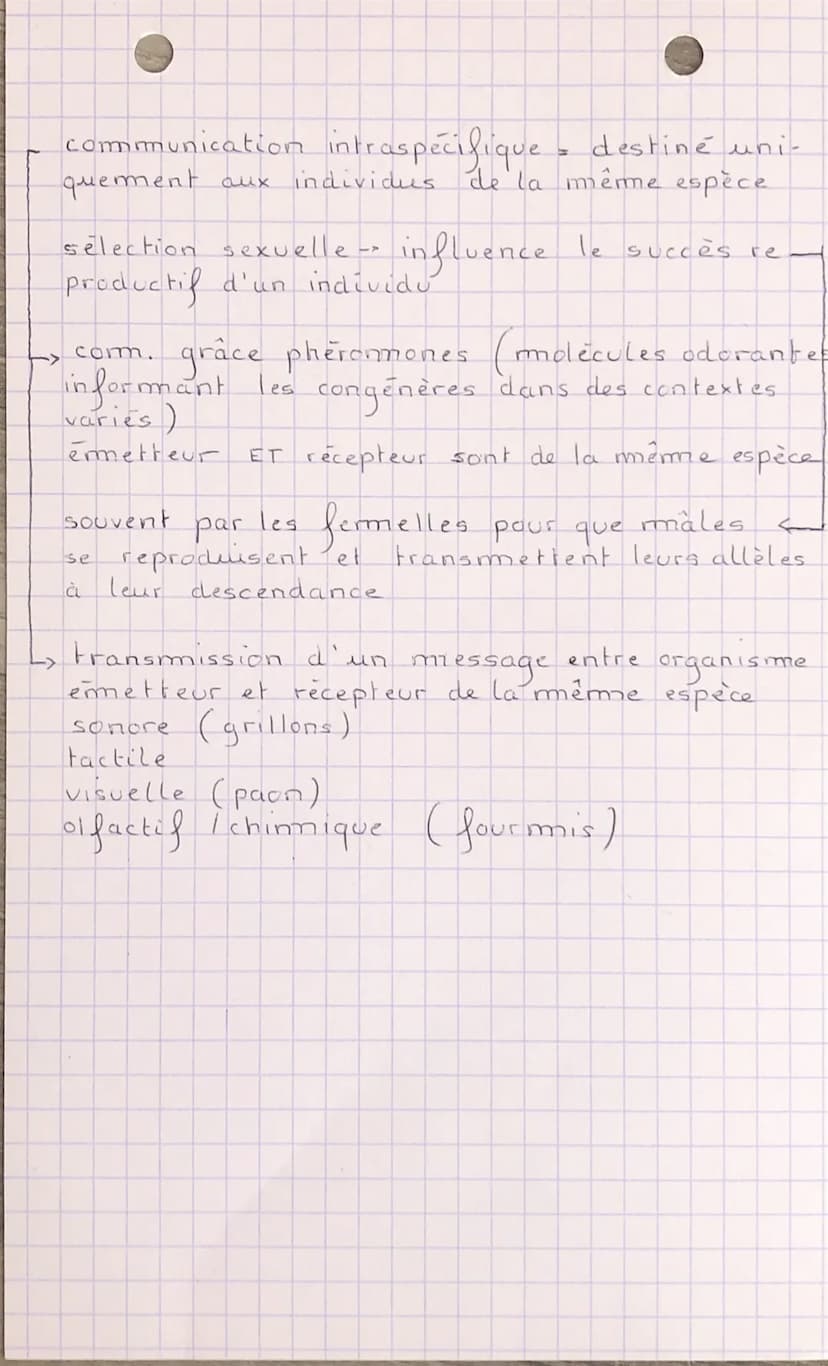 communication intraspécifique = destiné uni-
quement aux individus de la même espèce
sélection sexuelle -> influence le succès re
productif d'un individu
↳ com. grâce phéronmones (molécules odorantes
informant les congénères dans des contextes
variés)
émetteur ET récepteur sont de la même espèce
souvent par les femelles pour que mâles ←
se reproduisent et transmettent leurs allèles
à leur descendance
↳ transmission d'un message entre organisme
émetteur et récepteur de la même espèce
sonore (grillons)
tactile
visuelle (paon)
olfactif / chimique (fourmis)